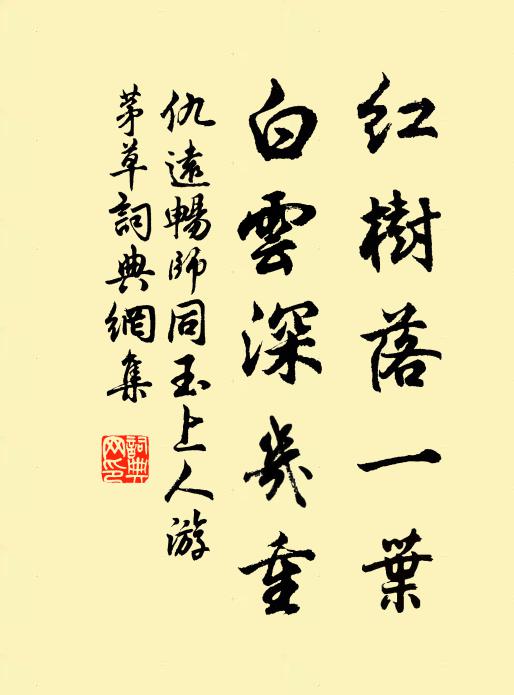 紅樹落一葉
白雲深幾重
仇遠暢師同玉上人游
茅草詞典網集
詞典
网印